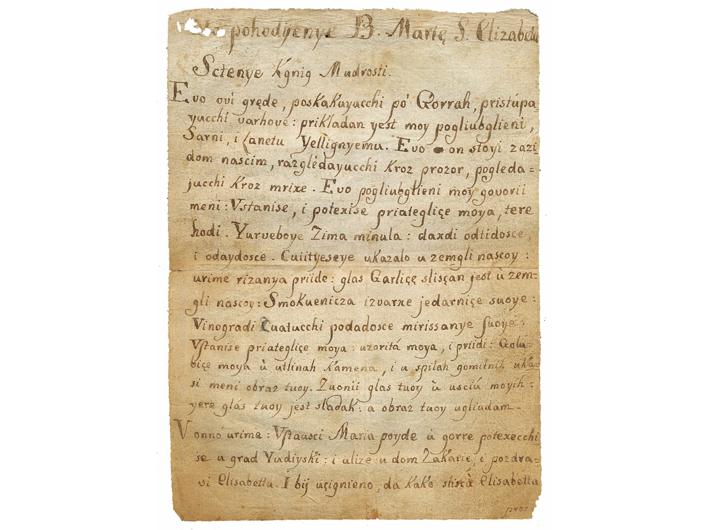 pohodyenye B. Marię S. Elizabetu
Sctenye Kgnig Mudrosti.
Evo ovi gręde, poskakayucchi po' Gorrah, pristupa
yucchi varhove: prikladan yest moy pogliubglieni,
Sarni, i Lanetu Yellignyemu. Evo on stoyi zazi
dom nascim, razglédayucchi kroz prozor, pogleda-
jucchi kroz mrixe. Evo pogliubglieni moy govorii
meni: Vstanise, i potexise priategliçe moya, tere
hodi. Yurveboye Zima minula: daxdi odtidosce,
i odaydosce. Cuiityeseye ukazalo u zemgli nascoy:
urime rizanya priide: glas Garliçę sliscan jest ù zem-
gli nascoy: Smokuenicza izvarxe jedarniçe suoye:
Vinogradi Cuatucchi podadosce mirissanye suoye.
Vstanise priategliçe moya: uzoritá moya, i priidi: Golu-
biçe moya ù utlinah Kamena, i u spilah gomilnih uká-
si meni obraz tuoy. Zuonii glas tuoy ù usciú moyih:
yere glás tuoy jest sladak: a obraz tuoy ugliudam.
Vonno urime: Vstausci Maria poyde ù gorre potexecchi
se u grad Yudiyski: i ulize u dom Zakarię, i pozdra-
vi Elisabettu. I bij ucignieno, da kako slisca Elisabetta